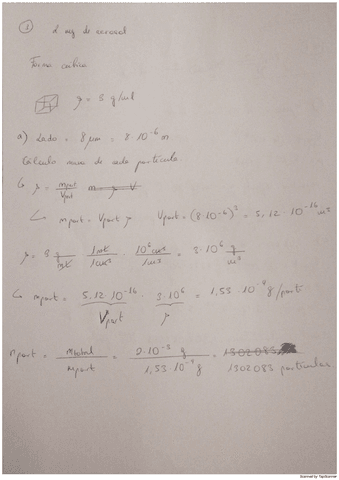 ① 2 mg de aerosol
Forma cúbica
ρ = 3 g/ml
a) Lado = 8 μm = 8·10⁻⁶ m
Cálculo masa de cada partícula
ρ = mpart / Vpart m ρ V
mpart = Vpart ρ Vpart = (8·10⁻⁶)³ = 5,12·10⁻¹⁶ m³
ρ = 3 g/ml · 1ml/1cm³ · 10⁶cm³/1m³ = 3·10⁶ g/m³
mpart = 5,12·10⁻¹⁶ · 3·10⁶ = 1,53·10⁻⁹ g/part
Vpart ρ
npart = mtotal / mpart = 2·10⁻³ g / 1,53·10⁻⁹ g = 1302083
1302083 partículas
Scanned by TapScanner